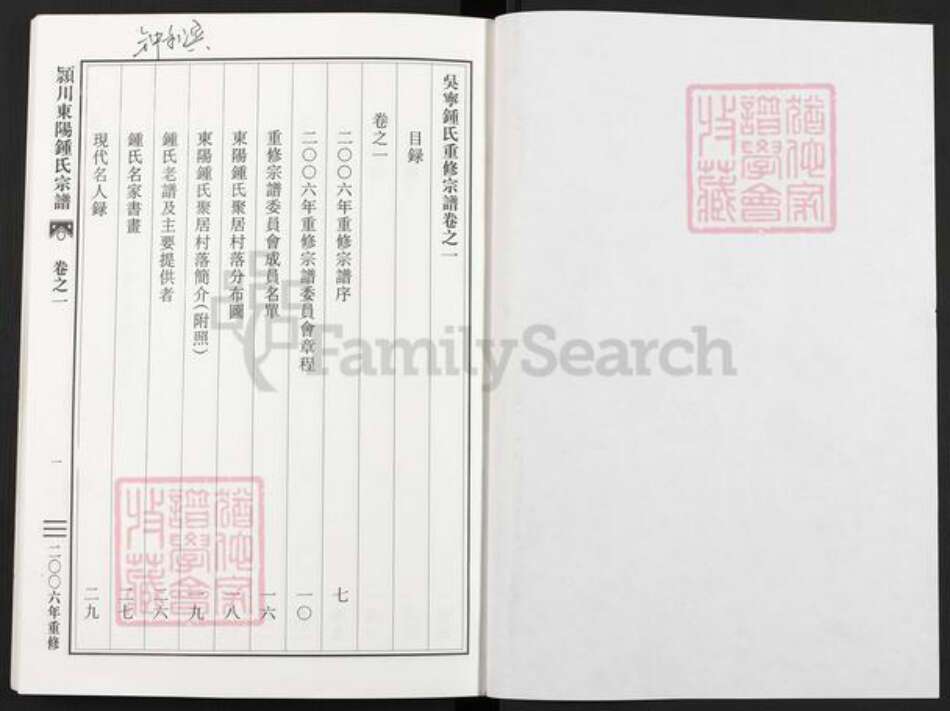 吳寧鍾氏重修宗譜卷之一
目録
卷之一
二〇〇六年重修宗譜序 七
二〇〇六年重修宗譜委員會章程 一〇
重修宗譜委員會成員名單 一六
東陽鍾氏聚居村落分布圖 一八
東陽鍾氏聚居村落簡介(附照) 一九
鍾氏老譜及主要提供者 二六
鍾氏名家書畫 二七
現代名人録 二九
潁川東陽鍾氏宗譜 卷之一 一 二〇〇六年重修
FamilySearch
譜學會
收藏
譜學會
收藏